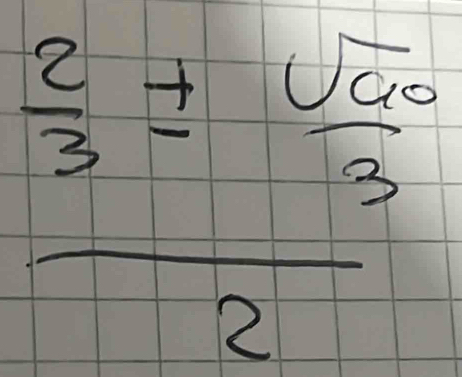 2/3 ± √40/3
2